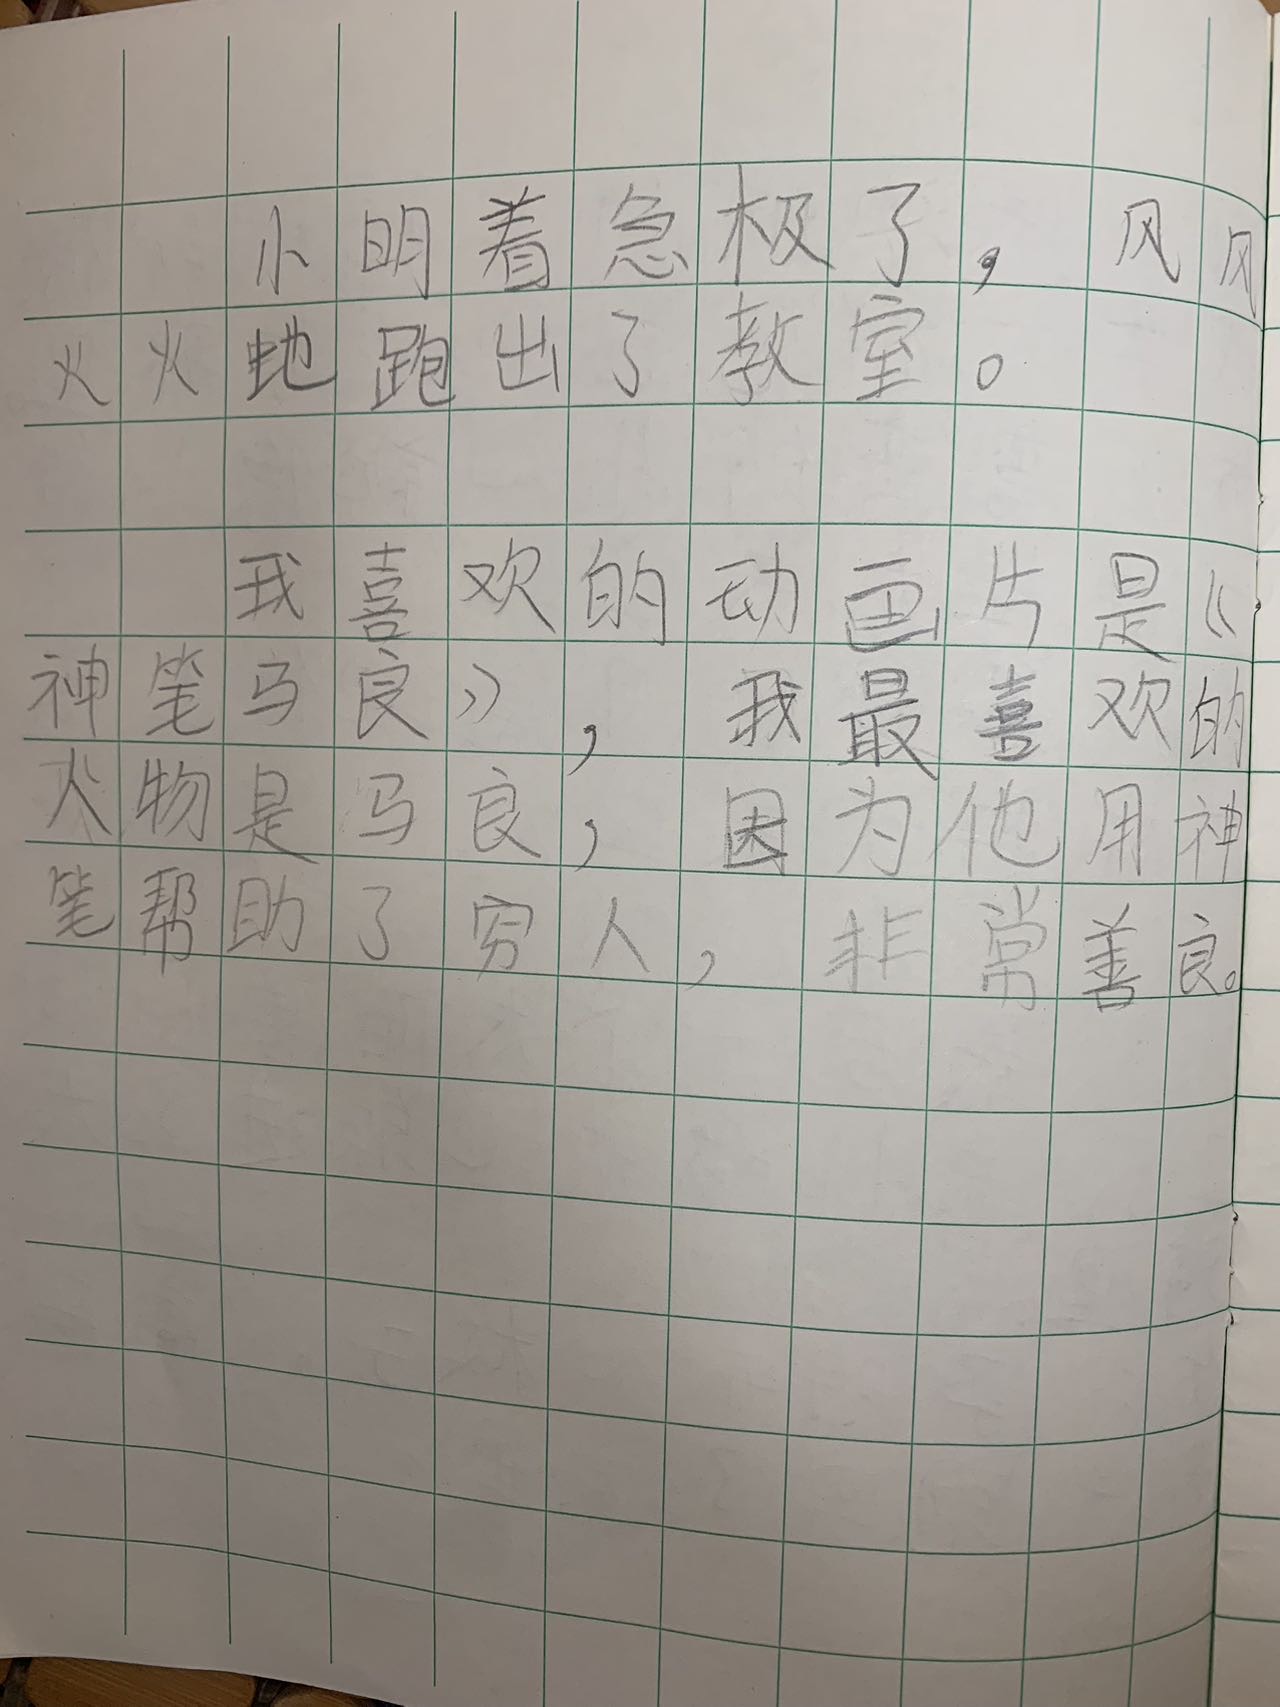 小明着急极了，风风
火火地跑出了教室。
我喜欢的动画片是《
神笔马良》，我最喜欢的
人物是马良，因为他用神
笔帮助了穷人，非常善良。